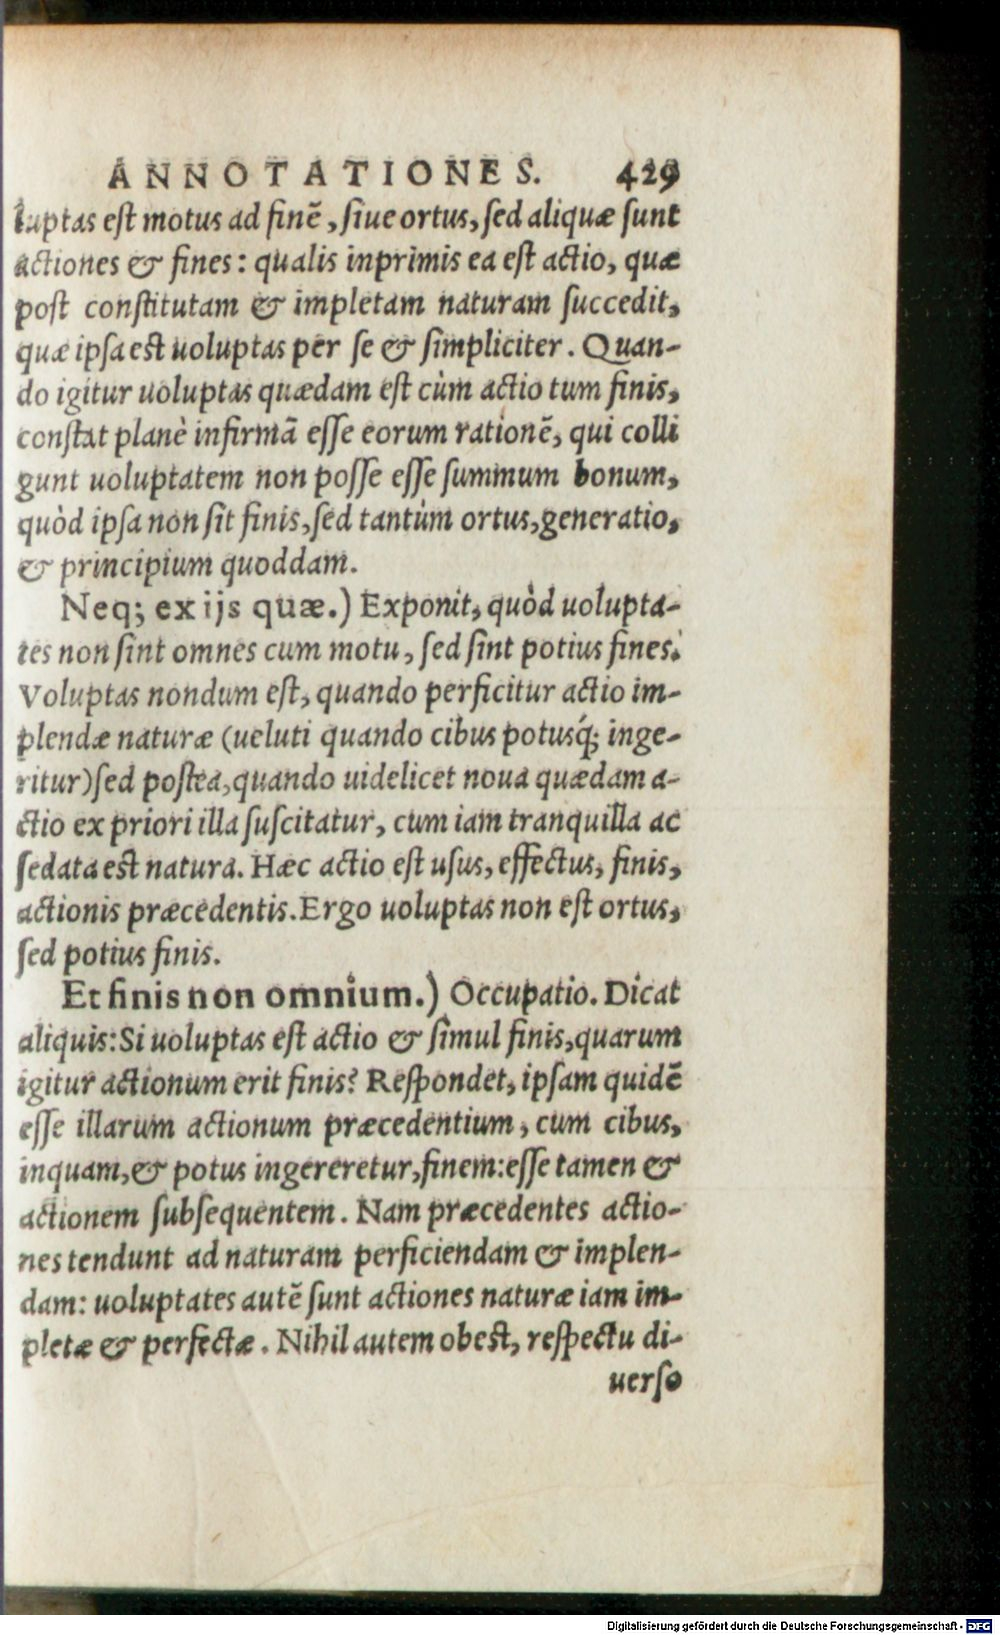 ANNOTATIONES. 429
luptas est motus ad finē, siue ortus, sed aliquæ sunt
actiones & fines: qualis inprimis ea est actio, quæ
post constitutam & impletam naturam succedit,
quæ ipsa est uoluptas per se & simpliciter. Quan-
do igitur uoluptas quædam est cùm actio tum finis,
constat planè infirmā esse eorum rationē, qui colli
gunt uoluptatem non posse esse summum bonum,
quòd ipsa non sit finis, sed tantùm ortus, generatio,
& principium quoddam.
Neq; ex ijs quæ.) Exponit, quòd uolupta-
tes non sint omnes cum motu, sed sint potius fines.
Voluptas nondum est, quando perficitur actio im-
plendæ naturæ (ueluti quando cibus potusq́; inge-
ritur) sed postea, quando uidelicet noua quædam a-
ctio ex priori illa suscitatur, cum iam tranquilla ac
sedata est natura. Hæc actio est usus, effectus, finis,
actionis præcedentis. Ergo uoluptas non est ortus,
sed potius finis.
Et finis non omnium.) Occupatio. Dicat
aliquis: Si uoluptas est actio & simul finis, quarum
igitur actionum erit finis? Respondet, ipsam quidē
esse illarum actionum præcedentium, cum cibus,
inquam, & potus ingereretur, finem: esse tamen &
actionem subsequentem. Nam præcedentes actio-
nes tendunt ad naturam perficiendam & implen-
dam: uoluptates autē sunt actiones naturæ iam im-
pletæ & perfectæ. Nihil autem obest, respectu di-
uerso
Digitalisierung gefördert durch die Deutsche Forschungsgemeinschaft - DFG